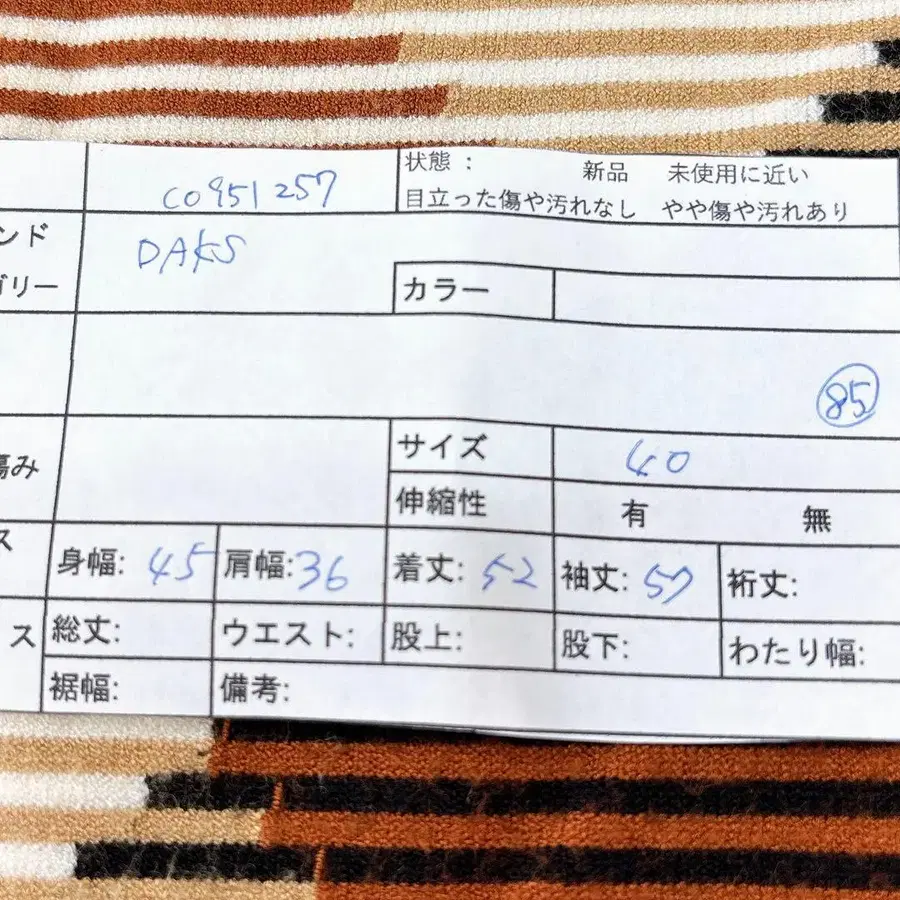 CO951257
状態: 新品 未使用に近い
目立った傷や汚れなし やや傷や汚れあり
ンド DAKS
ゴリー カラー
85
傷み サイズ 40
伸縮性 有 無
ス 身幅: 45 肩幅: 36 着丈: 52 袖丈: 57 裄丈:
ス 総丈: ウエスト: 股上: 股下: わたり幅:
裾幅: 備考: